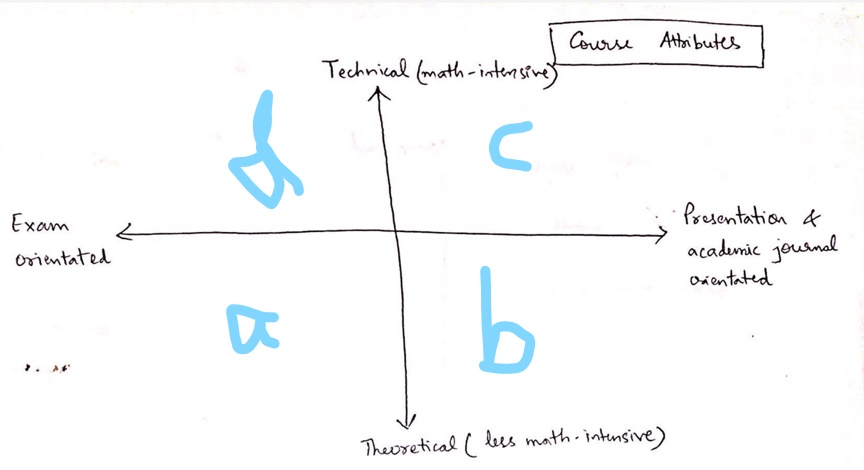 Course Attributes
Technical (math-intensive)
d
c
Exam
orientated
Presentation &
academic journal
orientated
a
b
Theoretical ( less math-intensive)